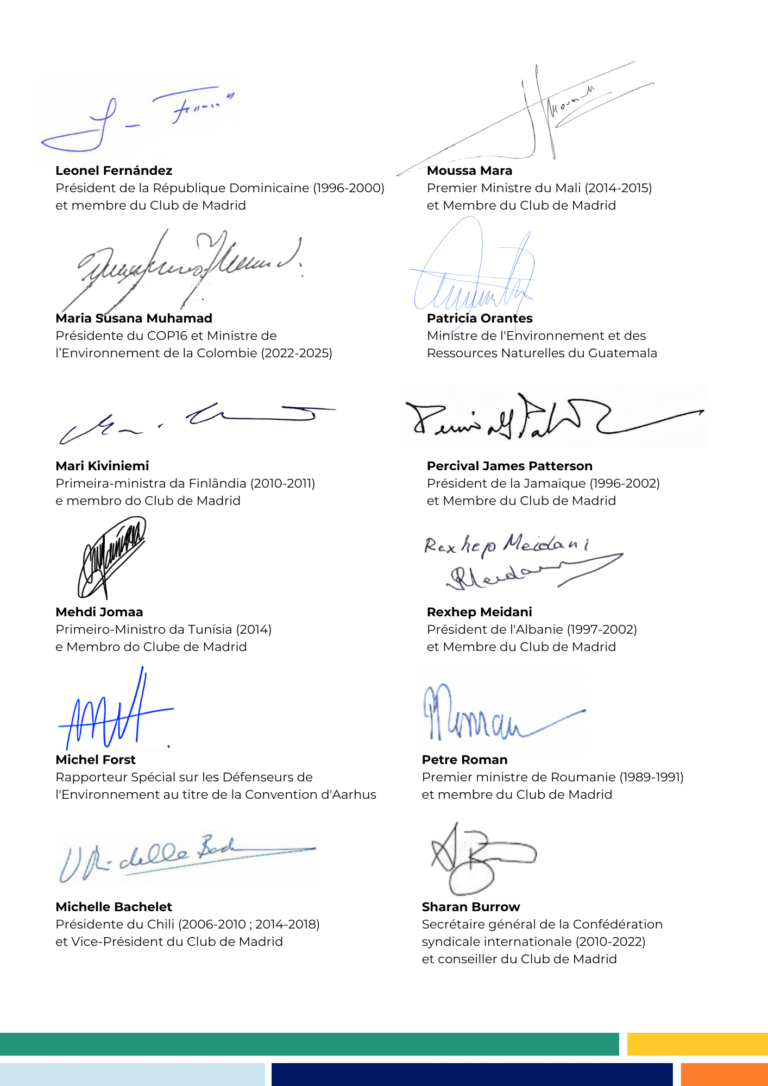 Leonel Fernández
Président de la République Dominicaine (1996-2000)
et membre du Club de Madrid
Moussa Mara
Premier Ministre du Mali (2014-2015)
et Membre du Club de Madrid
Maria Susana Muhamad
Présidente du COP16 et Ministre de
l'Environnement de la Colombie (2022-2025)
Patricia Orantes
Ministre de l'Environnement et des
Ressources Naturelles du Guatemala
Mari Kiviniemi
Primeira-ministra da Finlândia (2010-2011)
e membro do Club de Madrid
Percival James Patterson
Président de la Jamaïque (1996-2002)
et Membre du Club de Madrid
Mehdi Jomaa
Primeiro-Ministro da Tunísia (2014)
e Membro do Clube de Madrid
Rexhep Meidani
Rexhep Meidani
Président de l'Albanie (1997-2002)
et Membre du Club de Madrid
Michel Forst
Rapporteur Spécial sur les Défenseurs de
l'Environnement au titre de la Convention d'Aarhus
Petre Roman
Premier ministre de Roumanie (1989-1991)
et membre du Club de Madrid
Michelle Bachelet
Présidente du Chili (2006-2010 ; 2014-2018)
et Vice-Président du Club de Madrid
Sharan Burrow
Secrétaire général de la Confédération
syndicale internationale (2010-2022)
et conseiller du Club de Madrid